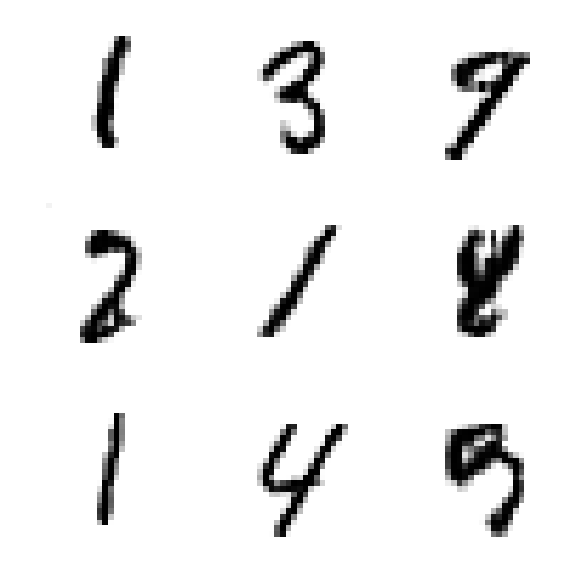 1 3 9
2 1 8
1 4 5